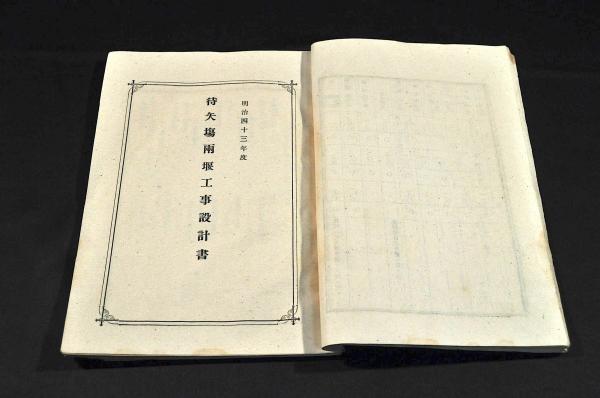 明治四十三年度
待矢塲兩堰工事設計書